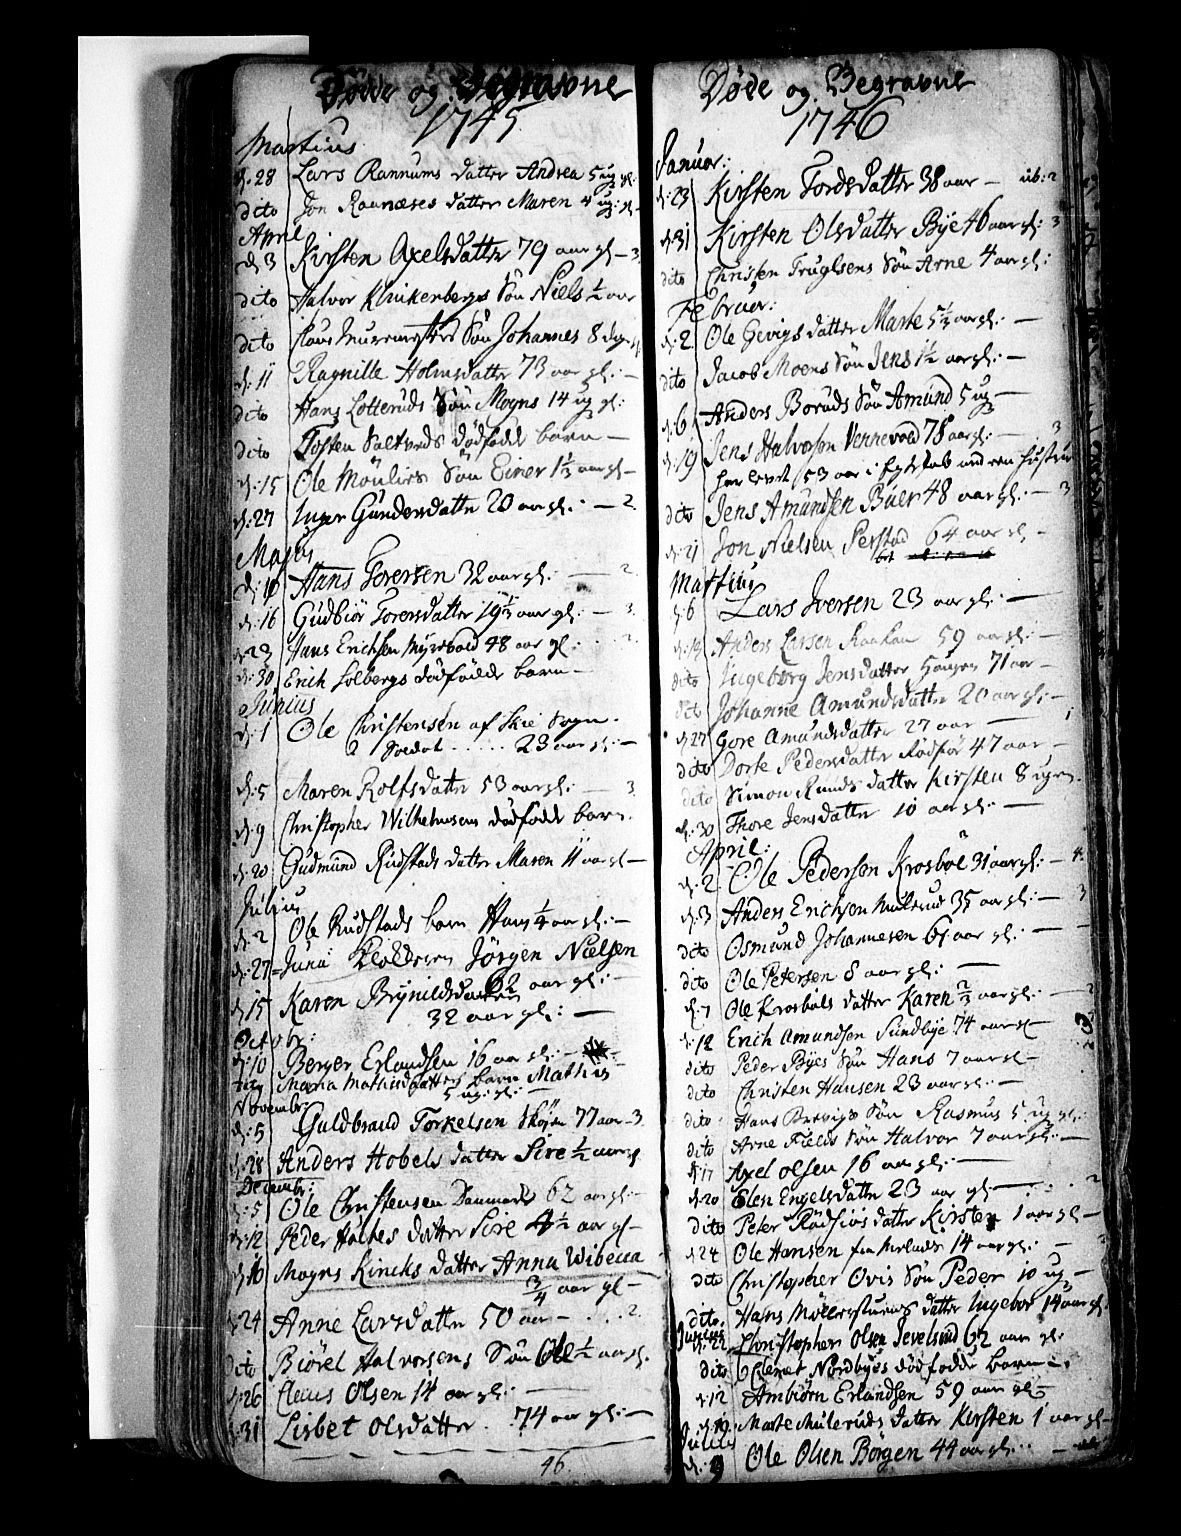 Døde og Begravne
1745
Martius
d: 28 Lars Rannums datter Andrea 5 ug gl:
dito Jon Raanæses datter Maren 4 ug: gl–
April
d 3 Kirsten Axelsdatter 79 aar gl – 3.
dito Halvor Klinkenbergs Søn Niels ½ aar
dito Søn Johannes 8 dage
d: 11 Ragnille Holmsdatter 73 aar gl: –
dito Hans Lotteruds Søn Mogns 14 ug gl:
dito Tosten Saltveds dødfødt barn –
d: 15 Ole Møllers Søn Einer 1⅓ aar gl –
d: 27 Inger Gundersdatter 20 aar gl: – 2.
Majus
d: 10 Hans Torersen 32 aar gl: — 2.
d: 16 Gudbiør Torersdatter 19½ aar gl: – 3.
d: 23 Hans Erichsen Myrevold 48 aar gl: 2.
d: 30 Erich Solbergs dødfødde barn –
Junius
d: 1 Ole Christensen af Skie Sogn.
2 Soldat ..... 23 aar gl: –
d: 5 Maren Rolfsdatter 53 aar gl: – 3.
d: 9 Christopher Wilhelmsens dødfødt barn.
d: 20 Gudmund Rudstads datter Maren 11 aar gl –
Julius
d: 2 Ole Rudstads barn Hans ¼ aar gl: –
d: 27 = Jørgen Nielsen
62 aar gl: –
d: 15 Karen Brynildsdatter
32 aar gl: –
Octobr:
d: 10 Berger Erlandsen 16 aar gl: –
Maria datters barn Mathis
5 ug: gl: –
Novembr:
d: 5 Guldbrand Torkelsen Skøyen 77 aar – 3.
d: 28 Anders Hobels datter Sire ½ aar gl
Decembr:
d: 5 Ole Christensen Danmark 62 aar gl: –
d: 12 Peder Holtes datter Sire 4½ aar gl –
d: 16 Mogns Kircks datter Anna Wibecca
¾ aar gl –
d: 24 Anne Larsdatter 50 aar – .... 2.
dito Biørel Halvorsens Søn Ole ½ aar gl.
d: 26 Claus Olsen 14 aar gl: –
d: 31 Lisbet Olsdatter . 74 aar gl: —
46.
Døde og Begravne
1746
Januar:
d: 23 Kirsten Tordsdatter 38 aar – ub: 2
d: 31 Kirsten Olsdatter Bye 46 aar gl: 3
dito Christen Truglsens Søn Arne 4 aar gl:
Februar:
d: 2 Ole Gevigs datter Marte 5⅓ aar gl: –
dito Jacob Moens Søn Jens 1½ aar gl: –
d: 6 Anders Boruds Søn Amund 5 ug –
d: 19 Jens Halvorson Vennevold 78 aar gl: – 3
har levet 53 aar i Egteskab med een Hustru
dito Jens Amundsen Buer 48 aar gl: – 3
d: 21 Jon Nielsen Perstad 64 aar gl –
Martius
d: 6 Lars Iversen 23 aar gl: —
Anders Larsen Kaakau 59 aar gl: –
dito Ingeborg Jensdatter Haugen 71 aar –
dito Johanne Amundsdatter 20 aar gl: –
d: 27 Gore Amundsdatter 27 aar – 1
dito Dorte Pedersdatter Rødsiør 47 aar –
dito Simon Runds datter Kirsten 8 ugr.
d: 30 Thore Jensdatter 10 aar gl: —
April:
d: 2 Ole Pedersen Krosbøl 31 aar gl: – 4.
d: 3 Anders Erichsen Mulerud 35 aar gl: – 3
dito Osmund Johannesen 61 aar gl: –
dito Ole Petersen 8 aar gl: —
d: 7 Ole Krosbøls datter Karen ⅔ aar gl: – 2
d: 12 Erich Amundsen Sundbye 74 aar gl – 3
dito Peder Byes Søn Hans 7 aar gl –
dito Christen Hansen 23 aar gl: –
dito Hans Brevigs Søn Rasmus 5 ug gl:
dito Arne Fields Søn Halvor 7 aar gl: –
d: 17 Axel Olsen 16 aar gl: —
d: 20 Elen Engelsdatter 23 aar gl — 2
dito Peter Rødsiøs datter Kirsten 1 aar gl –
d: 24 Ole Hansen fra 14 aar gl: –
dito Christopher Ovis Søn Peder 10 ug –
dito. Hans Møllerstuens datter Ingebor 14 aar gl.
Junius
d: 22 Christopher Olsen Jevelsrud 62 aar gl
dito Clemet Nordbyes dødfødde barn –.
d: 12 Ambiørn Erlandsen 59 aar gl –
d: 19. Marte Muleruds datter Kirsten 1 aar gl –
Julius
d: 9 Ole Olsen Børgen 44 aar gl: ..